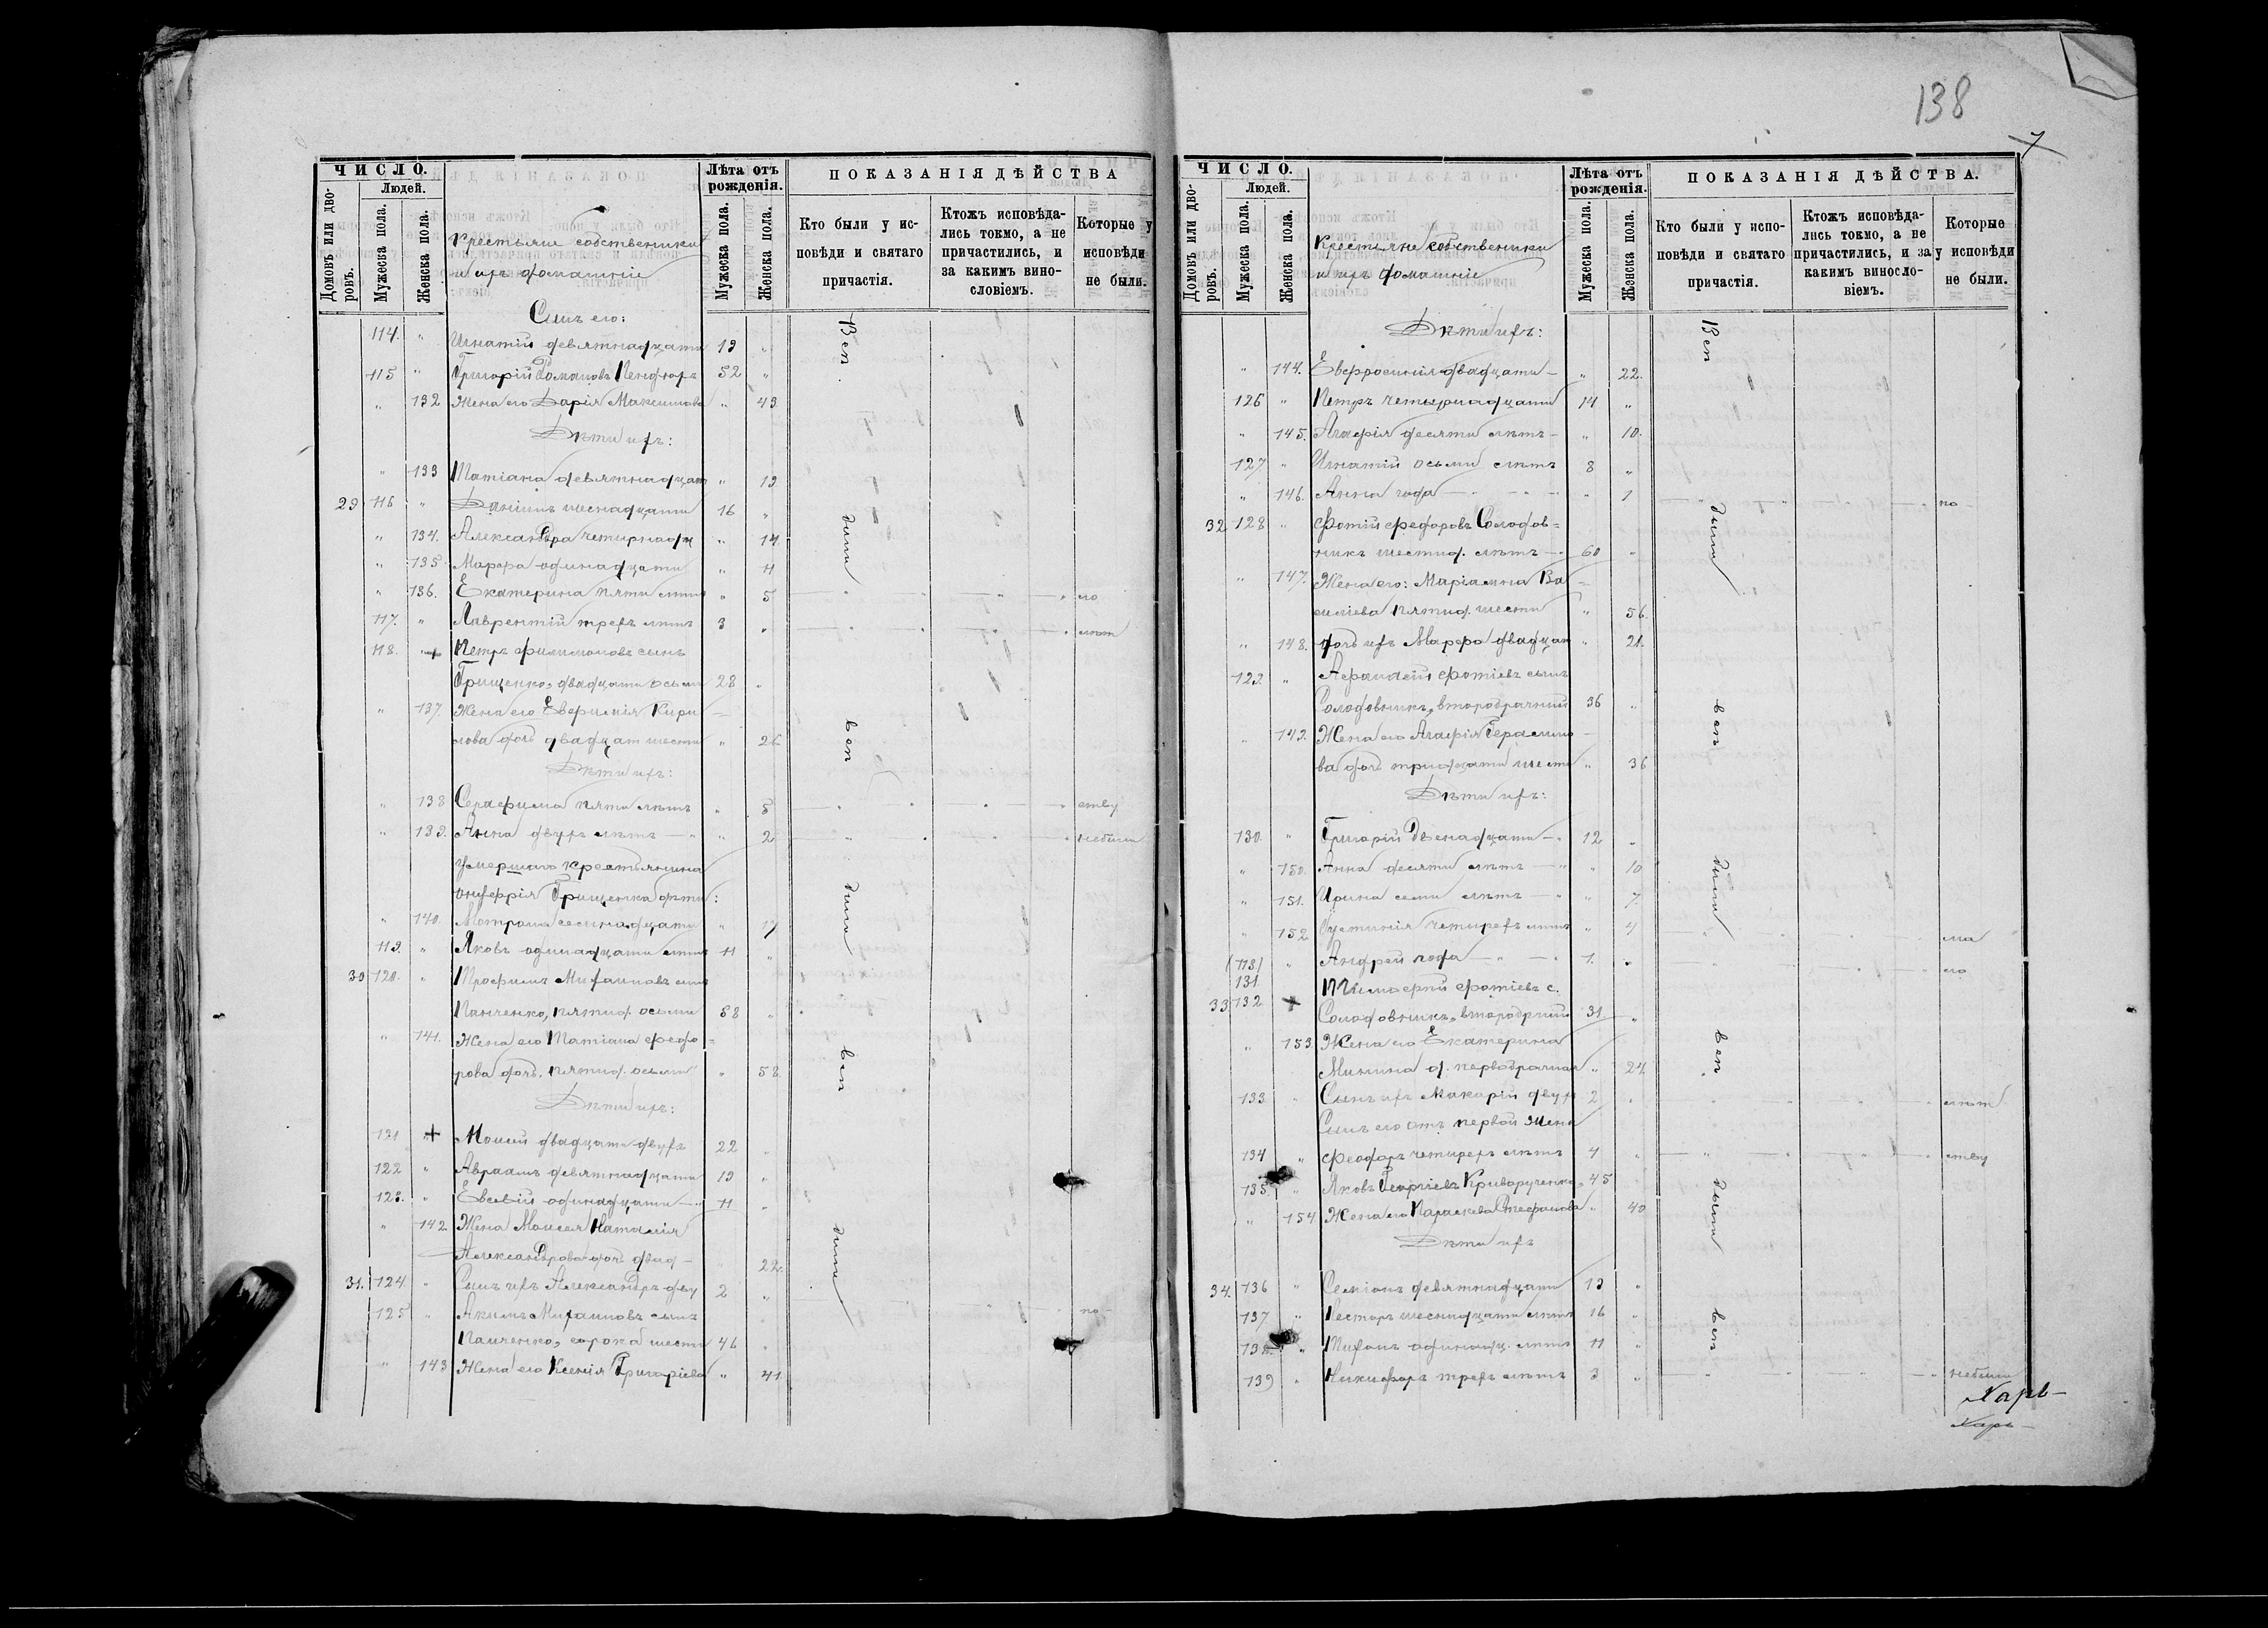 138
7
ЧИСЛО.
Людей.
Домовъ или дворовъ.
Мужеска пола.
Женска пола.
Крестьяне собственики
и ихъ домашніе
Лѣта отъ рожденія.
Мужеска пола.
Женска пола.
ПОКАЗАНІЯ ДѢЙСТВА
Кто были у исповѣди и святаго причастія.
Ктожъ исповѣдались токмо, а не причастились, и за какимъ винословіемъ.
Которые у исповѣди не были.
Сынъ его:
114. " Игнатій девятнадцати 19 "
115 " Григорій Романовъ 52 "
" 132 Жена его Дарія Максимова " 43
Дѣти ихъ:
" 133 Татіана девятнадцат " 19
29 116 " Даніилъ шеснадцати 16 "
" 134. Александра четырнадц " 14
" 135 Марфа одинадцати " 11
" 136. Екатерина пяти лѣтъ " 5 по
117. " Лаврентій трехъ лѣтъ 3 " лѣт
118. " + Петръ Филимоновъ сынъ
Грищенко, двадцати осьми 28 "
" 137. Жена его Евфимія Кири
лова дочь двадцат шести " 26
Дѣти ихъ:
" 138 Серафима пяти лѣтъ " 5 ству
" 139. Анна двухъ лѣтъ " 2 небыли
Умершаго крестьянина
Онуфрія Грищенка дѣти:
" 140. Матрона семнадцати " 17
119. " Яковъ одинадцати лѣтъ 11 "
30 120. " Трофимъ Михаиловъ сынъ
Панченко, пятид. осьми 58 "
" 141. Жена его Татіана Федо
рова дочь. пятид. осьми " 58.
Дѣти ихъ:
121 " + Моисей двадцати двухъ 22 "
122 " Авраамъ девятнадцати 19 "
123. " Евсевій одинадцати 11 "
" 142. Жена Моисея Наталія
Александрова дочь двад " 22.
31. 124. " Сынъ ихъ Александръ дву 2 " по
125 " Акимъ Михаиловъ сынъ
Панченко, сорока шести 46 "
" 143 Жена его Ксенія Григоріева " 41
ЧИСЛО.
Людей.
Домовъ или дворовъ.
Мужеска пола.
Женска пола.
Крестьяне собственики
и ихъ домашніе
Лѣта отъ рожденія.
Мужеска пола.
Женска пола.
ПОКАЗАНІЯ ДѢЙСТВА.
Кто были у исповѣди и святаго причастія.
Ктожъ исповѣдались токмо, а не причастились, и за какимъ винословіемъ.
Которые у исповѣди не были.
Дѣти ихъ:
" 144. Евфросинія двадцати " 22.
126 " Петръ четырнадцати 14 "
" 145. Агафія десяти лѣтъ " 10.
127 " Игнатій осьми лѣтъ 8 "
" 146. Анна года " 1 по
32 128 " Фотій Федоровъ Солодов=
никъ шестид. лѣтъ 60 "
" 147. Жена его: Маріамна Ва
силіева пятид. шести " 56.
" 148. дочь ихъ Марфа двадцат " 21.
129. " Афанасій Фотіевъ сынъ
Солодовникъ, второбрачный 36 "
" 149. Жена его Агафія Герасимо
ва дочь тридцати шести " 36
Дѣти ихъ:
130. " Григорій двенадцати 12 "
" 150. Анна десяти лѣтъ " 10
" 151. Ирина семи лѣтъ " 7.
" 152 Устинія четырехъ лѣтъ " 4 ма
(118.) 131 " Андрей года 1. " по
33 132 + Фотіевъ с.
Солодовникъ, второбрачный 31 "
" 153. Жена его Екатерина
Минина д. первобрачная " 24
133 " Сынъ ихъ Макарій двухъ 2 " лѣт
Сынъ его отъ первой жены
134 " Феодоръ четырехъ лѣтъ 4 " ству
135. " Яковъ Георгіевъ Криворученко 45
" 154 Жена его Параскева Стефанова " 40
Дѣти ихъ
34. 136 " Семіонъ девятнадцати 19 "
137 " Несторъ шеснадцати лѣтъ 16 "
138. " Тихонъ одинадц. лѣтъ 11 "
139 " Никифоръ трехъ лѣтъ 3 " небыли
Харь-
Харь-